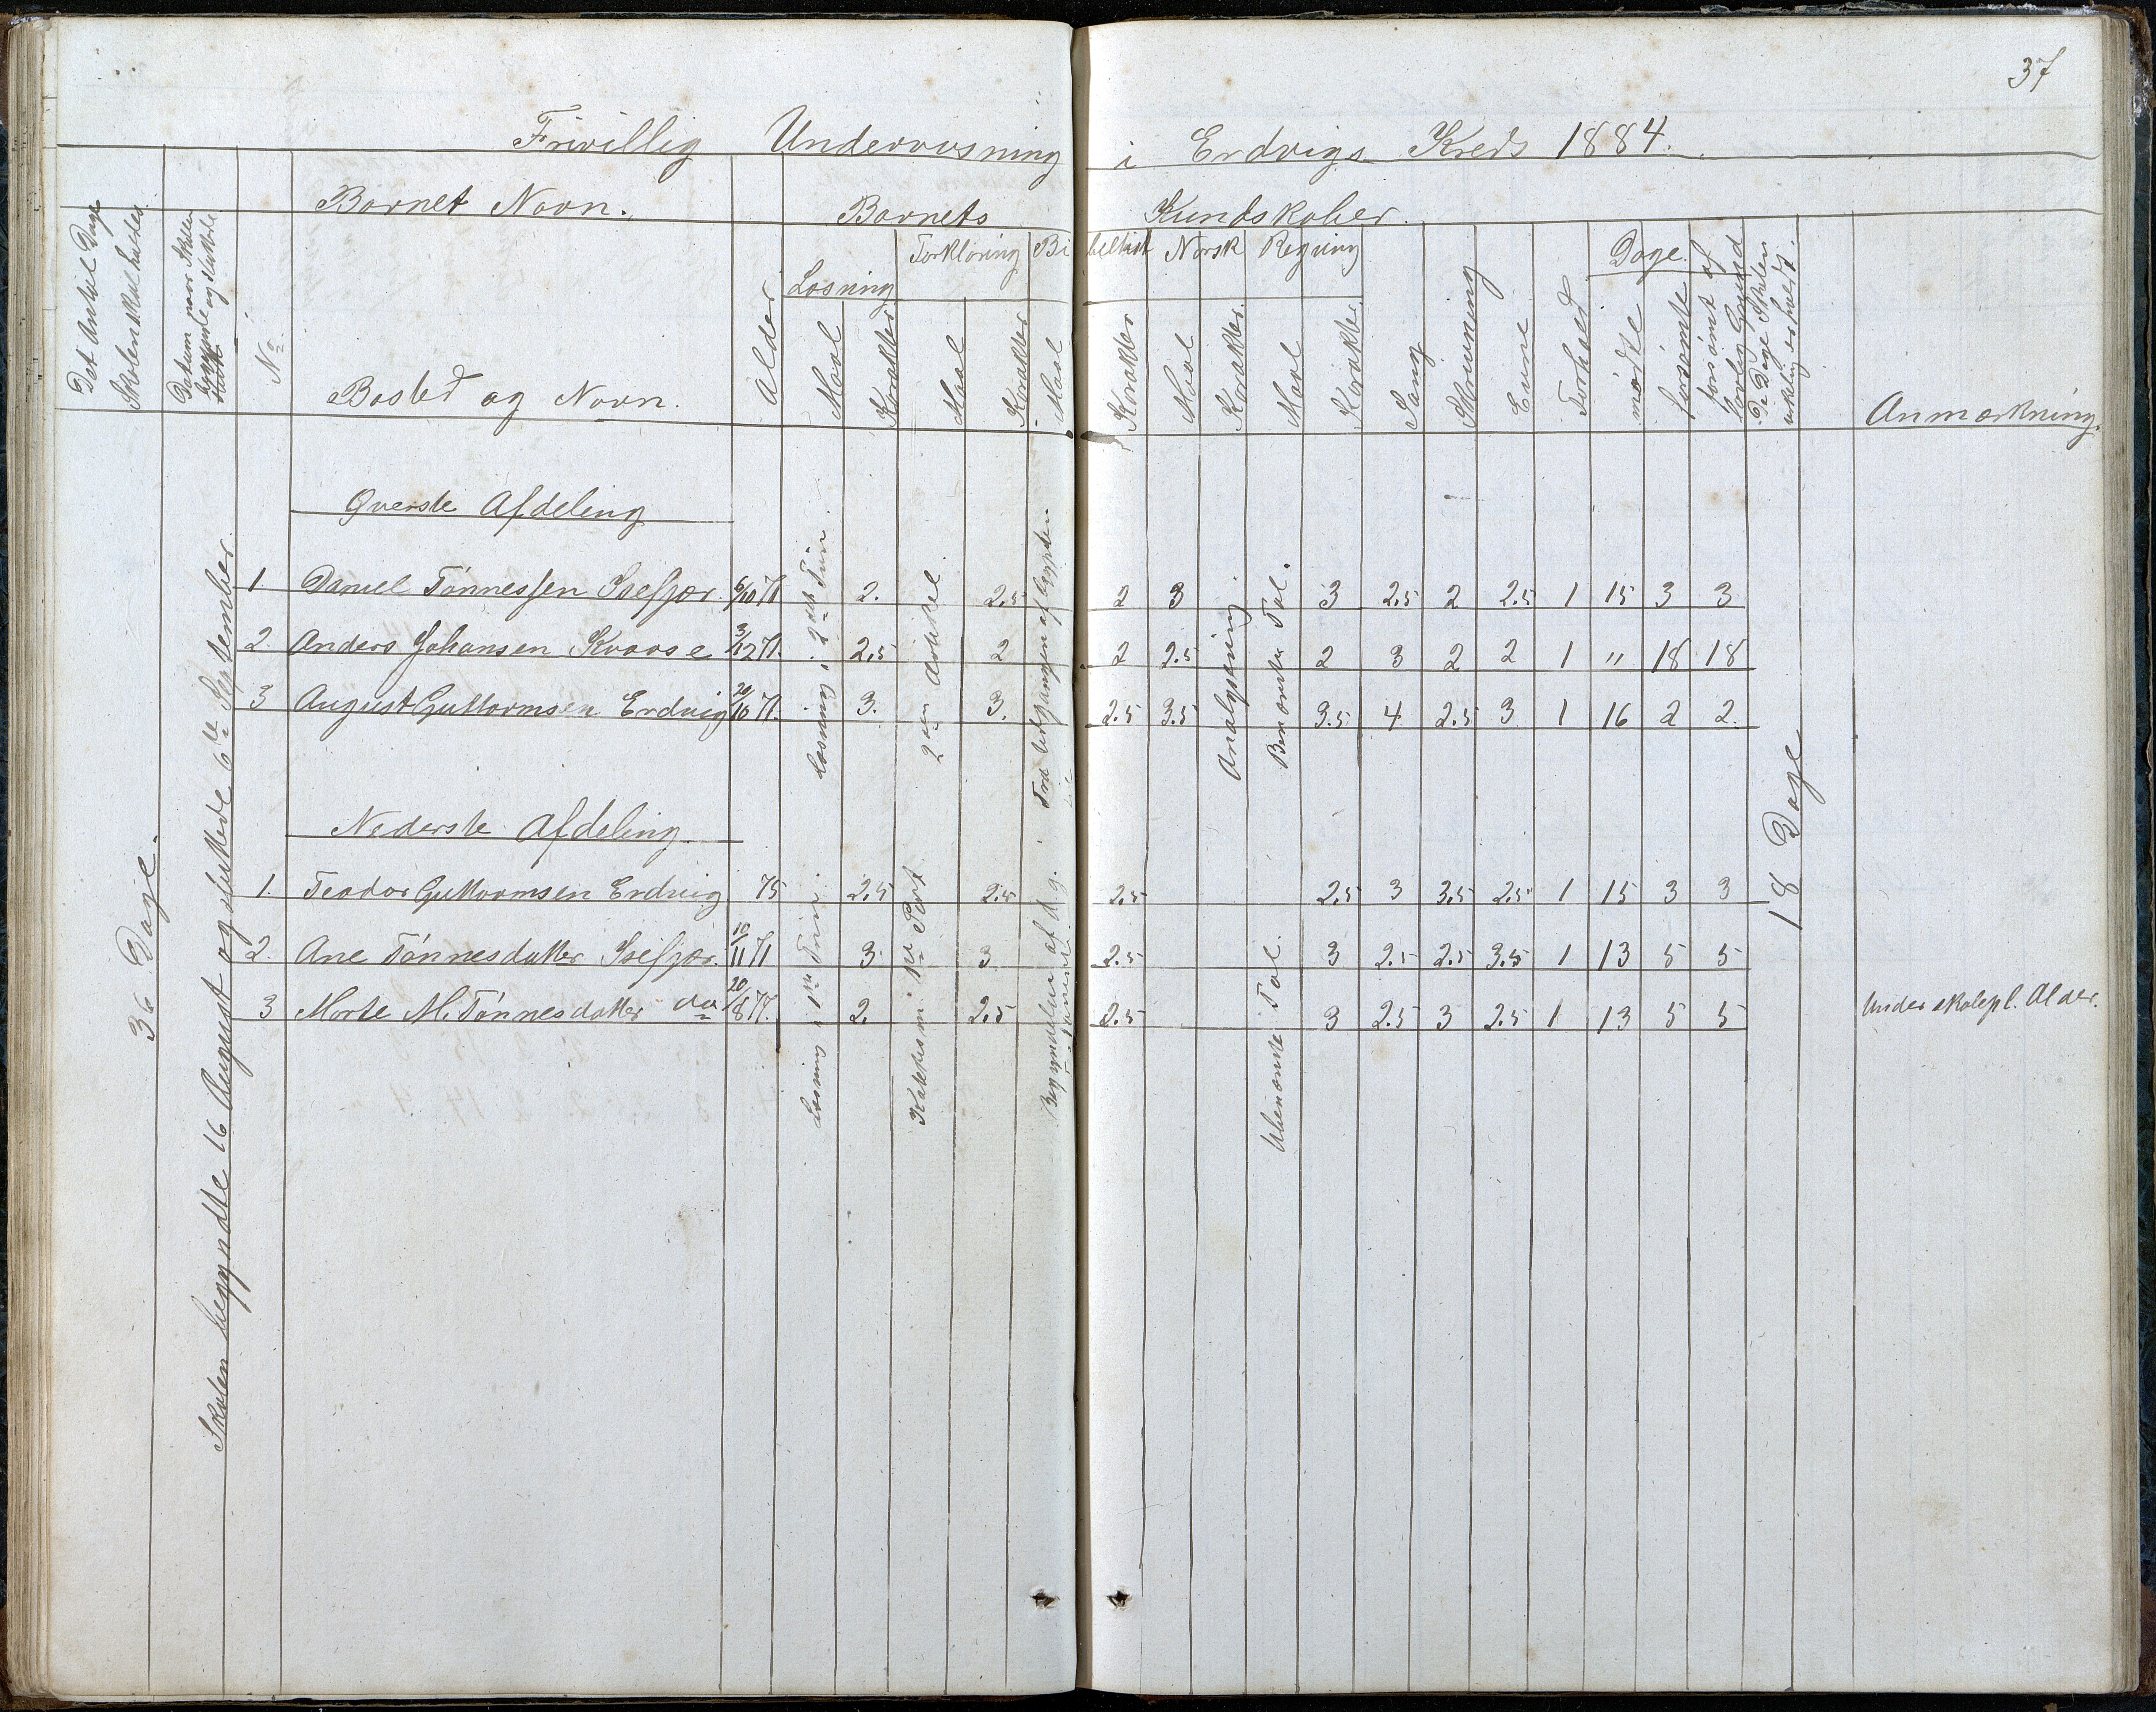 37
Frivillig Undervisning i Erdvigs Kreds 1884.
Det Antal Dage Skolen skal holdes
Datum naar Skolen begyndte og sluttede
No
Barnet Navn.
Bosted og Navn.
Alder
Barnets Kundskaber.
Læsning
Forklaring
Bibelhist
Norsk
Regning
Maal
Karakter
Maal
Karakter
Maal
Karakter
Maal
Karakter
Maal
Karakter
Sang
Skrivning
Evne
Forhold
Dage.
mødte
forsømte
forsømt af lovlig Grund
De Dage Skolen virkelig er holdt.
Anmærkning.
36 Dage.
Skolen begyndte 16 August og sluttede 6te September.
Øverste Afdeling
Læsning i 2det Trin.
2den Artikkel.
Fra Udgangen af Egypten
Analysering.
Benævnte Tal.
1 Daniel Tønnessen Isefjær. 6/10 71 2. 2.5 2 3 3 2.5 2 2.5 1 15 3 3
2. Anders Johansen Kvaase 3/12 71. 2.5 2 2 2.5 2 3 2 2 1 " 18 18
3 August Guttormsen Erdvig 20/10 71. 3. 3. 2.5 3.5 3.5 4 2.5 3 1 16 2 2.
18 Dage
Nederste Afdeling
Læsning i 1ste Trin.
Katekismi 1ste Part.
Begyndelse af d. g.
Ubenævnte Tal.
1. Teodor Guttormsen Erdvig 75 2.5 2.5 2.5 2.5 3 3.5 2.5 1 15 3 3
2. Ane Tønnesdatter Isefjær. 10/11 71 3 3 2.5 3 2.5 2.5 3.5 1 13 5 5
3 Marte M. Tønnesdatter do 20/8 77. 2. 2.5 2.5 3 2.5 3 2.5 1 13 5 5 Under skolepl. Alder.